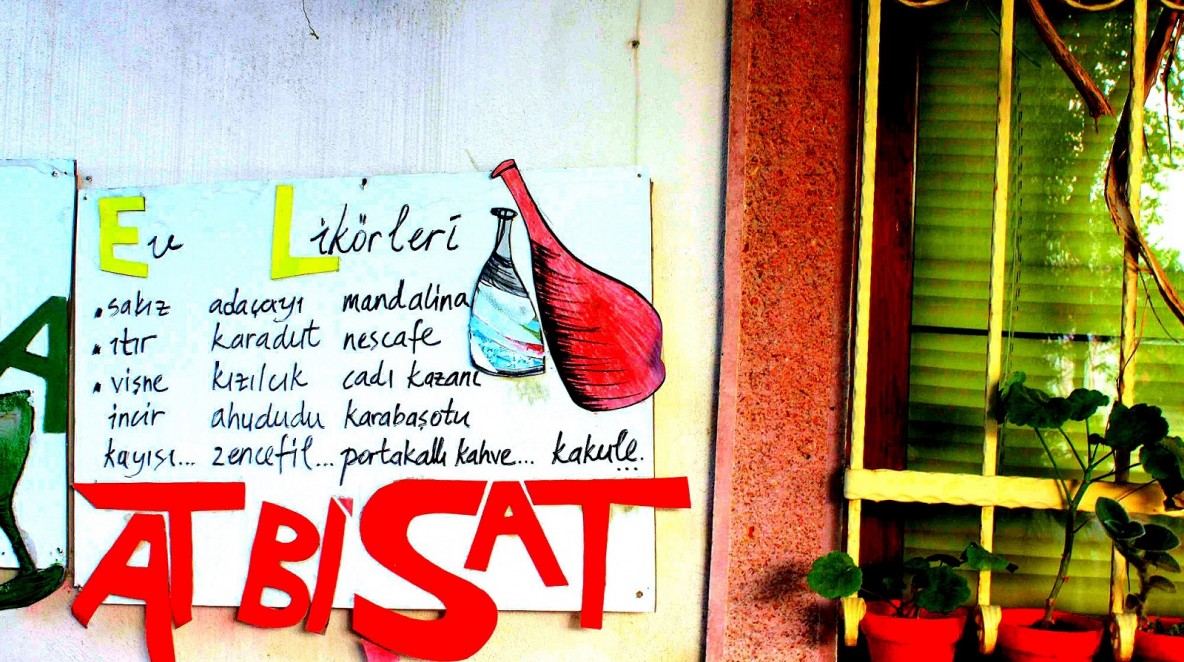 A
Ev Likörleri
.sakız adaçayı mandalina
.ıtır karadut nescafe
.vişne kızılcık cadı kazanı
incir ahududu karabaşotu
kayısı... zencefil... portakallı kahve... kakule...
AT BİSAT